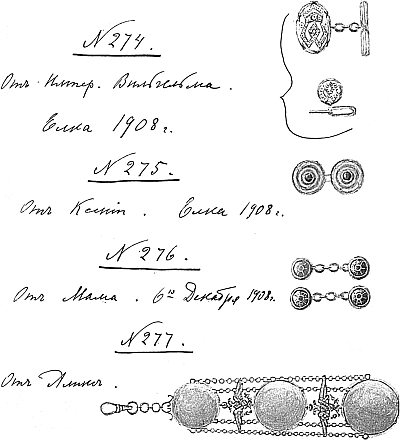 N 274.
Отъ Импер. Вильгельма.
Елка 1908 г.
N 275.
Отъ Ксеніи. Елка 1908 г.
N 276.
Отъ Мама. 6го Декабря 1908 г.
N 277.
Отъ Аликсъ.